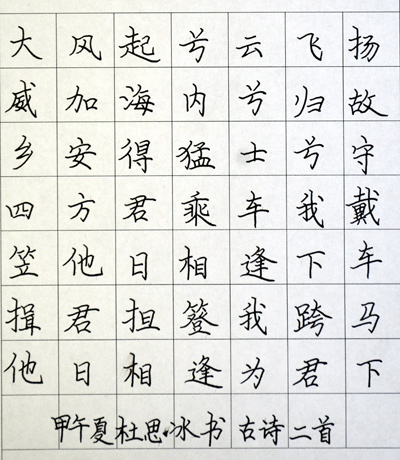 大风起兮云飞扬
威加海内兮归故
乡安得猛士兮守
四方君乘车我戴
笠他日相逢下车
揖君担簦我跨马
他日相逢为君下
甲午夏杜思冰书古诗二首